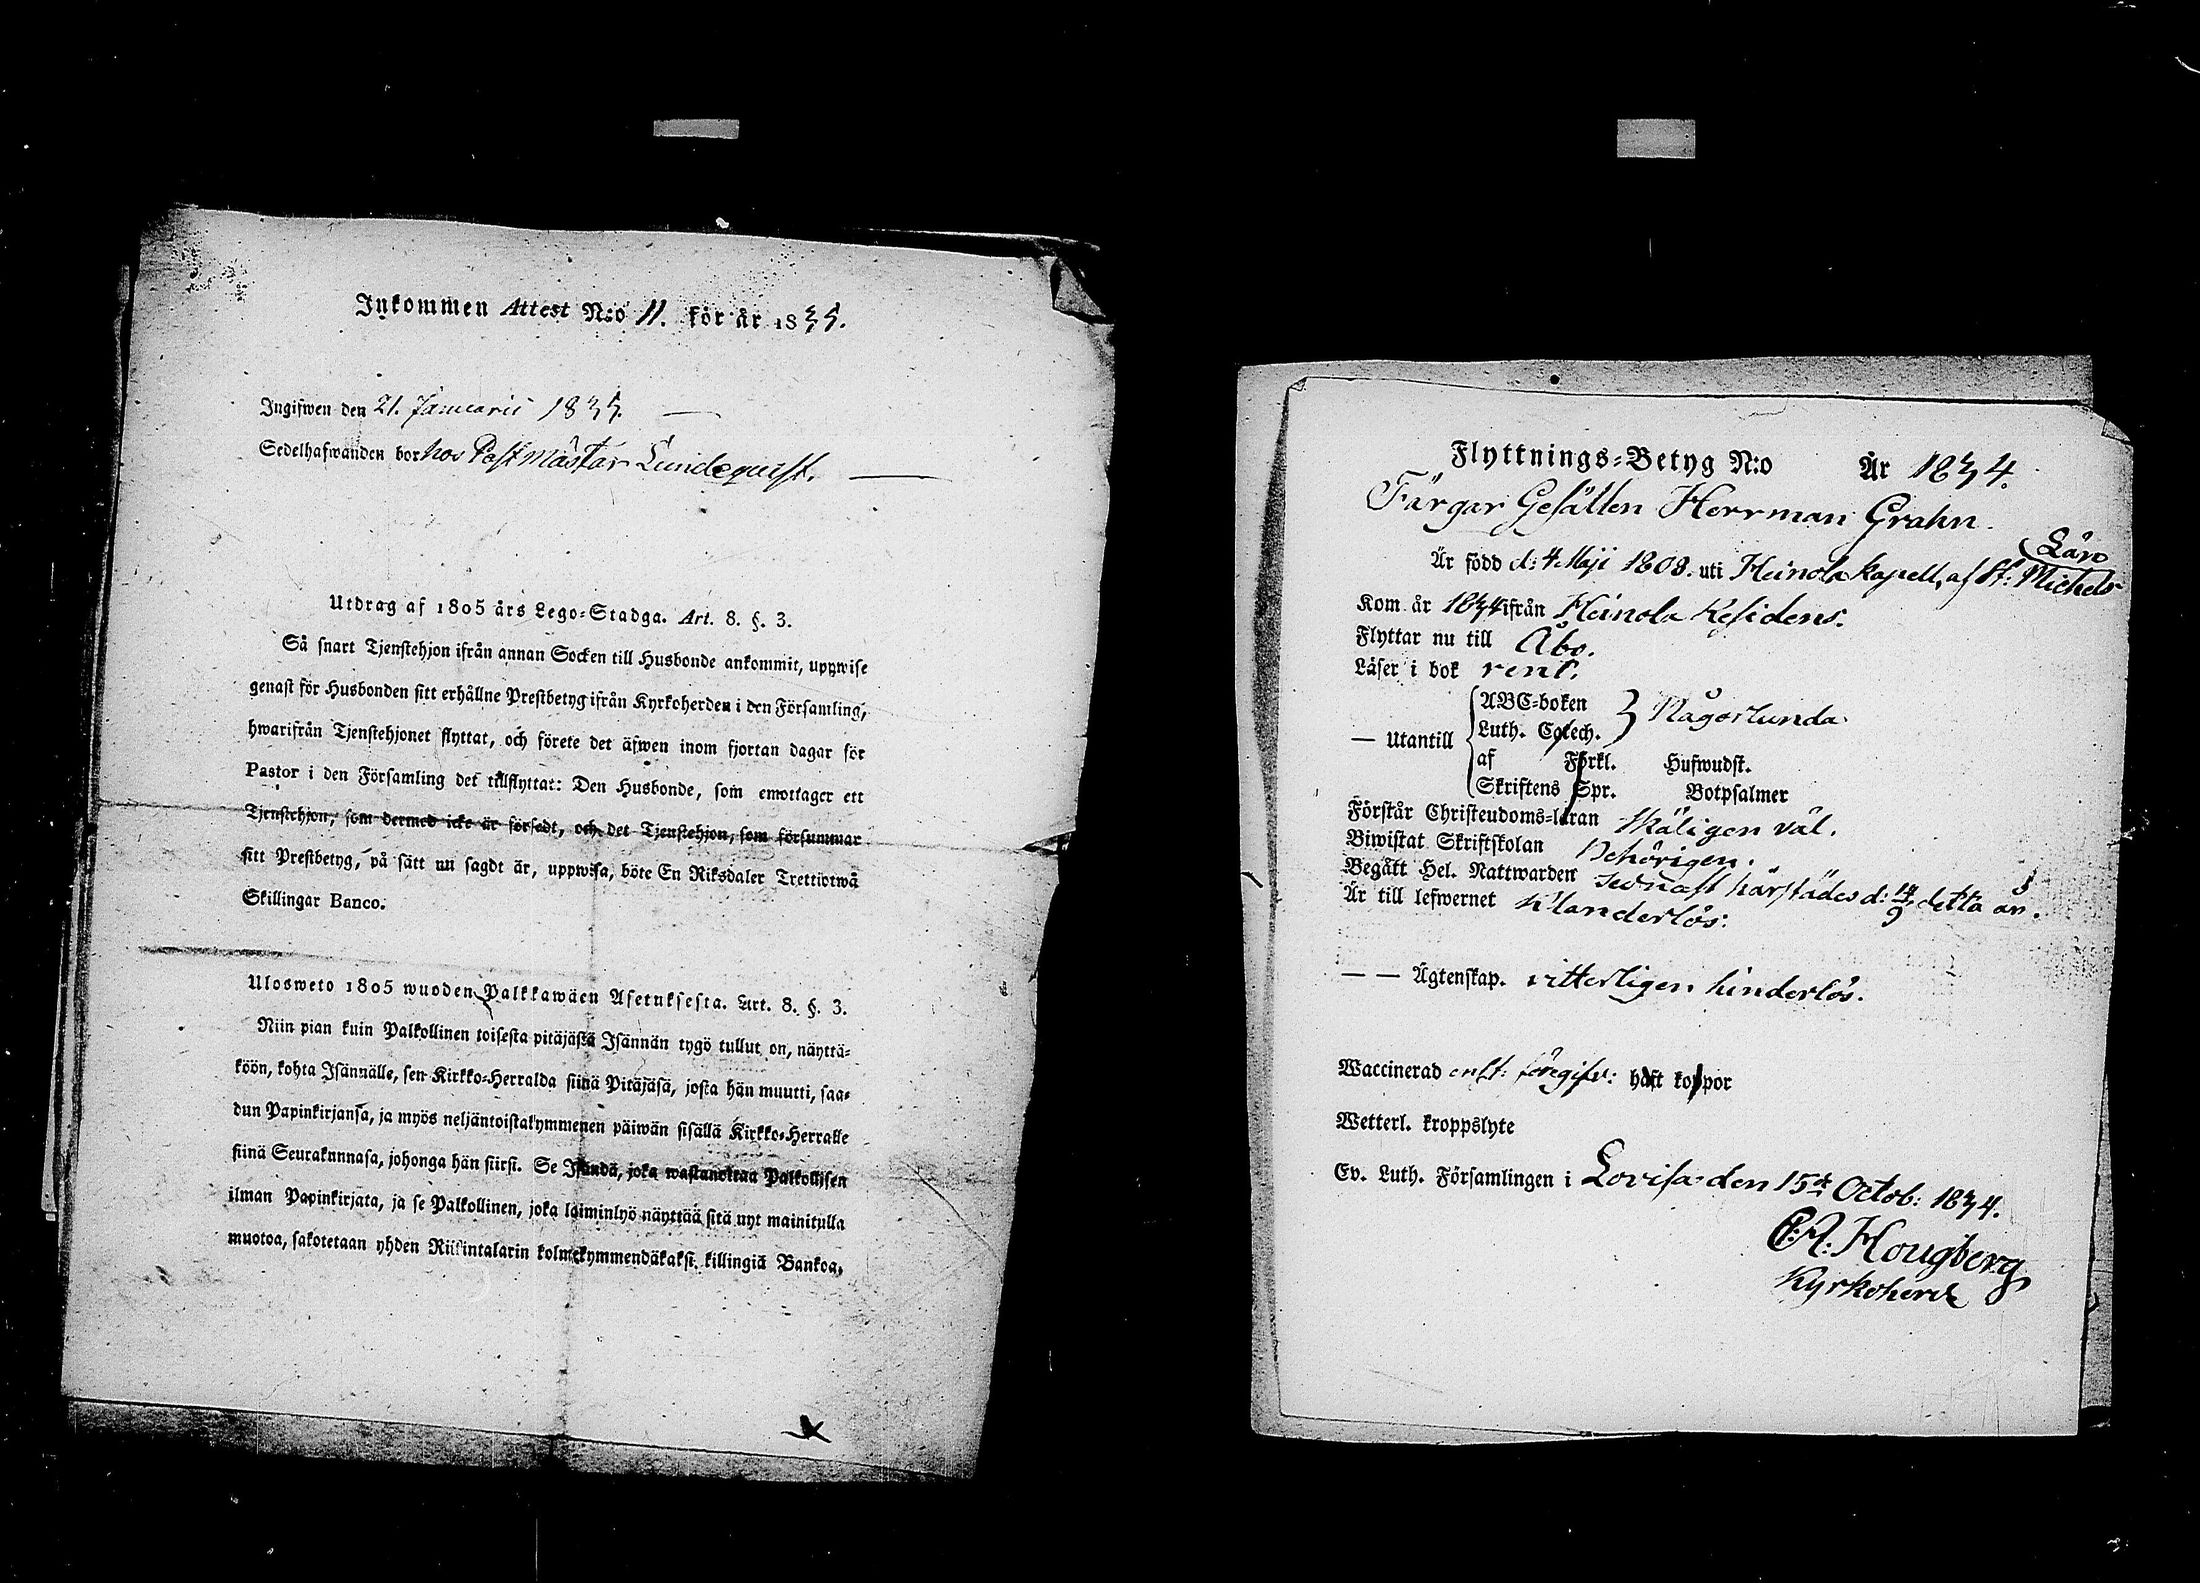 Inkommen Attest N:o 11. för år 1835.
Ingifwen den 21. Januarii 1835.
Sedelhafwanden bor hos Postmästar Lundequist.
Utdrag af 1805 års Lego-Stadga. Art. 8. §. 3.
Så snart Tjenstehjon ifrån annan Socken till Husbonde ankommit, uppwise
genast för Husbonden sitt erhållne Prestbetyg ifrån Kyrkoherden i den Församling,
hwarifrån Tjenstehjonet flyttat, och förete det äfwen inom fjortan dagar för
Pastor i den Församling det tillflyttat: Den Husbonde, som emottager ett
Tjenstehjon, som dermed icke är försedt, och det Tjenstehjon, som försummar
sitt Prestbetyg, på sätt nu sagdt är, uppwisa, böte En Riksdaler Trettiotwå
Skillingar Banco.
Ulosweto 1805 wuoden Palkkawäen Asetuksesta. Art. 8. §. 3.
Niin pian kuin Palkollinen toisesta pitäjästä Isännän tygö tullut on, näyttä-
köön, kohta Isännälle, sen Kirkko-Herralda siinä Pitäjäsä, josta hän muutti, saa-
dun Papinkirjansa, ja myös neljäntoistakymmenen päiwän sisällä Kirkko-Herralle
siinä Seurakunnasa, johonga hän siirsi. Se Isändä, joka wastanottaa Palkollisen
ilman Papinkirjata, ja se Palkollinen, joka laiminlyö näyttää sitä nyt mainitulla
muotoa, sakotetaan yhden Riikintalarin kolmekymmendäkaksi killingiä Bankoa.
Flyttnings-Betyg N:o År 1834.
Färgar Gesällen Herrman Grahn.
Län
Är född d: 4 Maji 1808. uti Heinola Kapell, af St: Michels
Kom år 1834 ifrån Heinola Residens.
Flyttar nu till Åbo.
Läser i bok rent.
— Utantill
ABC-boken
Luth. Catech. } Någorlunda
af Förkl. Hufwudst.
Skriftens Spr. Botpsalmer
Förstår Christendoms-läran skäligen väl.
Biwistat Skriftskolan behörigen.
Begått Hel. Nattwarden sednast härstädes d: 14/9 detta år.
Är till lefwernet klanderlös.
— — Ägtenskap. vitterligen hinderlös.
Waccinerad enl: föregifv: haft koppor
Wetterl. kroppslyte
Ev. Luth. Församlingen i Lovisa den 15de Octob: 1834.
Hougberg
Kyrkoherde